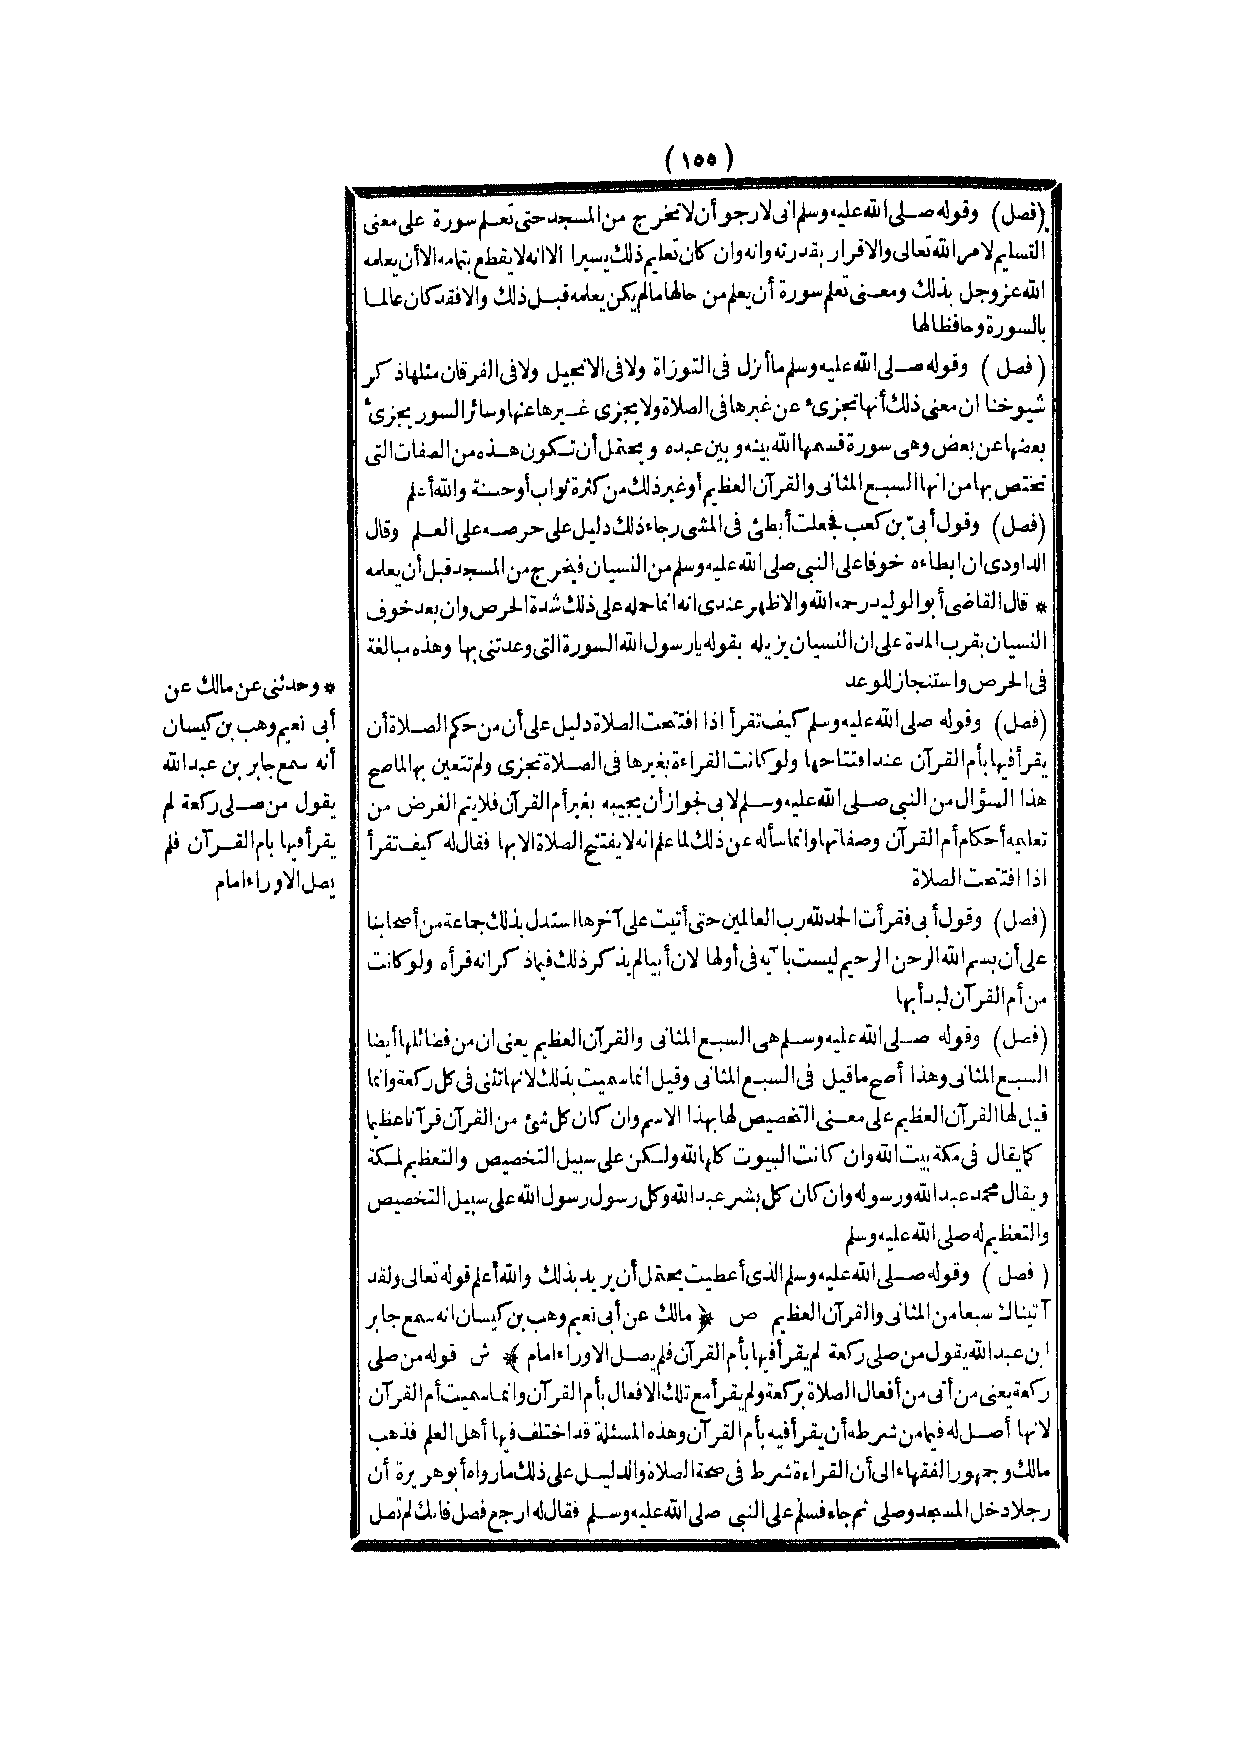 (١٥٥)
(فصل) وقوله صلى الله عليه وسلم انى لارجو أن لا تخرج من المسجد حتى تعلم سورة على معنى
التسليم لامر الله تعالى والاقرار بقدرته وانه وان كان تعليم ذلك يسيرا الا انه لا يقطع بتمامه الا أن يعلمه
الله عز وجل بذلك ومعنى تعلم سورة أن يعلم من حالها ما لم يكن يعلمه قبل ذلك والا فقد كان عالما
بالسورة وحافظا لها
(فصل) وقوله صلى الله عليه وسلم ما أنزل فى التوراة ولا فى الانجيل ولا فى الفرقان مثلها ذكر
شيوخنا ان معنى ذلك أنها تجزىء عن غيرها فى الصلاة ولا يجزى غيرها عنها وسائر السور يجزىء
بعضها عن بعض وهى سورة قسمها الله بينه وبين عبده ويحتمل أن تكون هذه من الصفات التى
تختص بها من انها السبع المثانى والقرآن العظيم أو غير ذلك من كثرة ثواب أو حسنة والله أعلم
(فصل) وقول أبىّ بن كعب فجعلت أبطئ فى المشى رجاء ذلك دليل على حرصه على العلم وقال
الداودى ان ابطاءه خوفا على النبى صلى الله عليه وسلم من النسيان فيخرج من المسجد قبل أن يعلمه
* قال القاضى أبو الوليد رحمه الله والاظهر عندى انه انما حمله على ذلك شدة الحرص وان بعد خوف
النسيان بقرب المدة على ان النسيان يزيله بقوله يا رسول الله السورة التى وعدتنى بها وهذه مبالغة
فى الحرص واستنجاز للوعد
(فصل) وقوله صلى الله عليه وسلم كيف تقرأ اذا افتتحت الصلاة دليل على أن من حكم الصلاة أن
يقرأ فيها بأم القرآن عند افتتاحها ولو كانت القراءة بغيرها فى الصلاة تجزى ولم تتعين بها لما صح
هذا السؤال من النبى صلى الله عليه وسلم لابى لجواز أن يجيبه بغير أم القرآن فلا يتم الغرض من
تعليمه أحكام أم القرآن وصفاتها وانما سأله عن ذلك لما علم انه لا يفتتح الصلاة الا بها فقال له كيف تقرأ
اذا افتتحت الصلاة
(فصل) وقول أبى فقرأت الحمد لله رب العالمين حتى أتيت على آخرها استدل بذلك جماعة من أصحابنا
على أن بسم الله الرحمن الرحيم ليست بآية فى أولها لان أبيا لم يذكر ذلك فيما ذكر انه قرأه ولو كانت
من أم القرآن لبدأ بها
(فصل) وقوله صلى الله عليه وسلم هى السبع المثانى والقرآن العظيم يعنى ان من فضائلها أيضا
السبع المثانى وهذا أصح ما قيل فى السبع المثانى وقيل انما سميت بذلك لانها تثنى فى كل ركعة وانما
قيل لها القرآن العظيم على معنى التخصيص لها بهذا الاسم وان كان كل شئ من القرآن قرآنا عظيما
كما يقال فى مكة بيت الله وان كانت البيوت كلها لله ولكن على سبيل التخصيص والتعظيم لمكة
ويقال محمد عبد الله ورسوله وان كان كل بشر عبد الله وكل رسول رسول الله على سبيل التخصيص
والتعظيم له صلى الله عليه وسلم
(فصل) وقوله صلى الله عليه وسلم الذى أعطيت يحتمل أن يريد بذلك والله أعلم قوله تعالى ولقد
آتيناك سبعا من المثانى والقرآن العظيم ص ﴿ مالك عن أبى نعيم وهب بن كيسان انه سمع جابر
ابن عبد الله يقول من صلى ركعة لم يقرأ فيها بأم القرآن فلم يصل الا وراء امام ﴾ ش قوله من صلى
ركعة يعنى من أتى من أفعال الصلاة بركعة ولم يقرأ مع تلك الافعال بأم القرآن وانما سميت أم القرآن
لانها أصل له فيما من شرطه أن يقرأ فيه بأم القرآن وهذه المسئلة قد اختلف فيها أهل العلم فذهب
مالك وجمهور الفقهاء الى أن القراءة شرط فى صحة الصلاة والدليل على ذلك ما رواه أبو هريرة أن
رجلا دخل المسجد وصلى ثم جاء فسلم على النبى صلى الله عليه وسلم فقال له ارجع فصل فانك لم تصل
* وحدثنى عن مالك عن
أبى نعيم وهب بن كيسان
أنه سمع جابر بن عبد الله
يقول من صلى ركعة لم
يقرأ فيها بام القرآن فلم
يصل الا وراء امام